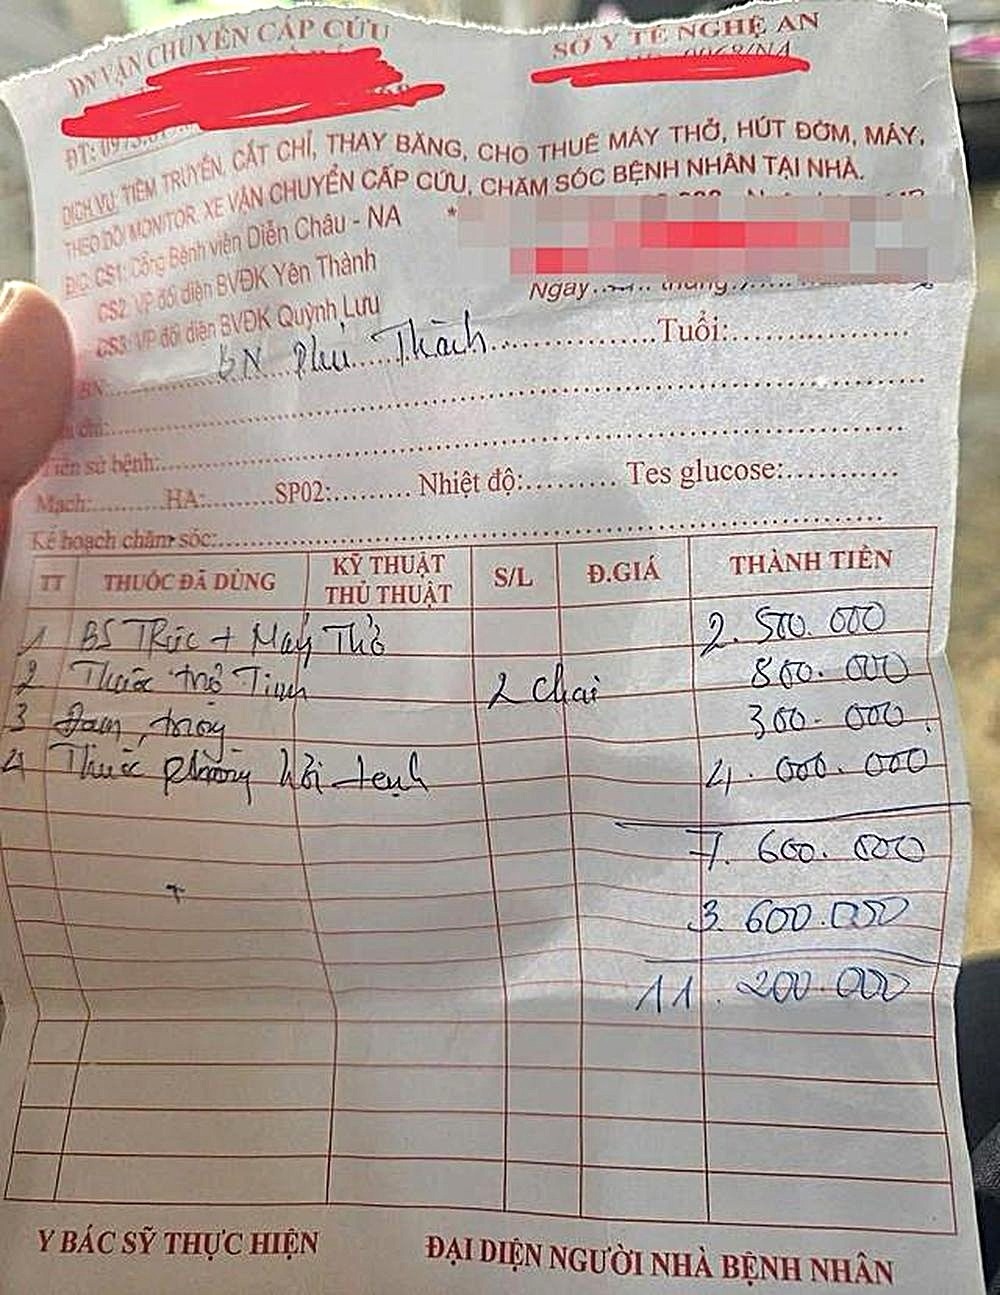 DN VẬN CHUYỂN CẤP CỨU
SỞ Y TẾ NGHỆ AN
0068/NA
ĐT: 0973.01
DỊCH VỤ: TIÊM TRUYỀN, CẮT CHỈ, THAY BĂNG, CHO THUÊ MÁY THỞ, HÚT ĐỜM, MÁY,
THEO DÕI MONITOR, XE VẬN CHUYỂN CẤP CỨU, CHĂM SÓC BỆNH NHÂN TẠI NHÀ.
Đ/C: CS1: Cổng Bệnh viện Diễn Châu - NA *
CS2: VP đối diện BVĐK Yên Thành
CS3: VP đối diện BVĐK Quỳnh Lưu
Ngày..... tháng.......
BN:........BN Phú Thành................Tuổi:....................
chỉ:....................
Tiền sử bệnh:....................
Mạch:..........HA:........SP02:......... Nhiệt độ:......... Tes glucose:...........
Kế hoạch chăm sóc:....................
TT THUỐC ĐÃ DÙNG KỸ THUẬT THỦ THUẬT S/L Đ.GIÁ THÀNH TIỀN
1 BS Trực + Máy Thở 2.500.000
2 Thuốc trợ Tim 2 chai 800.000
3 Đạm, 300.000
4 Thuốc phòng hồi 4.000.000
7.600.000
3.600.000
11.200.000
Y BÁC SỸ THỰC HIỆN
ĐẠI DIỆN NGƯỜI NHÀ BỆNH NHÂN